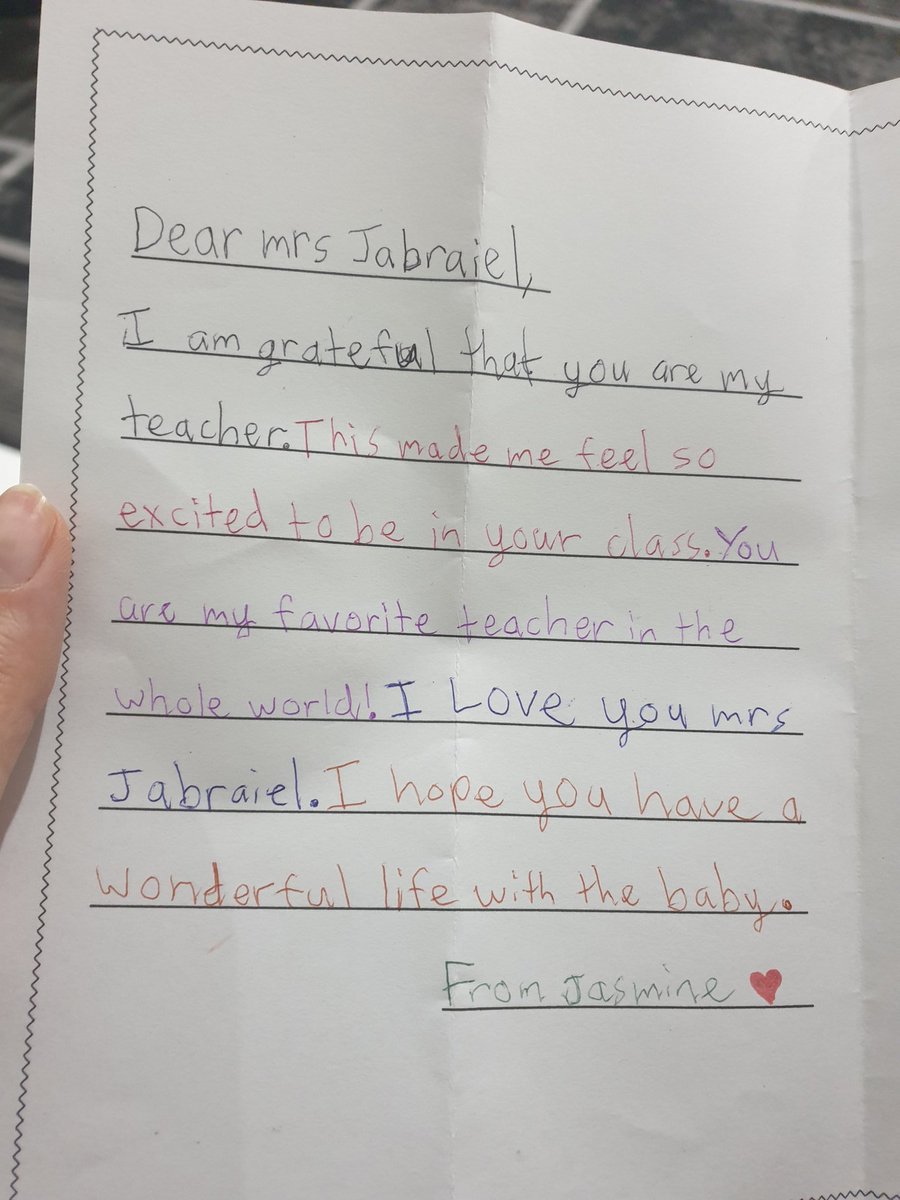 Dear mrs Jabraiel,
I am grateful that you are my
teacher. This made me feel so
excited to be in your class. You
are my favorite teacher in the
whole world! I Love you mrs
Jabraiel. I hope you have a
wonderful life with the baby.
From Jasmine